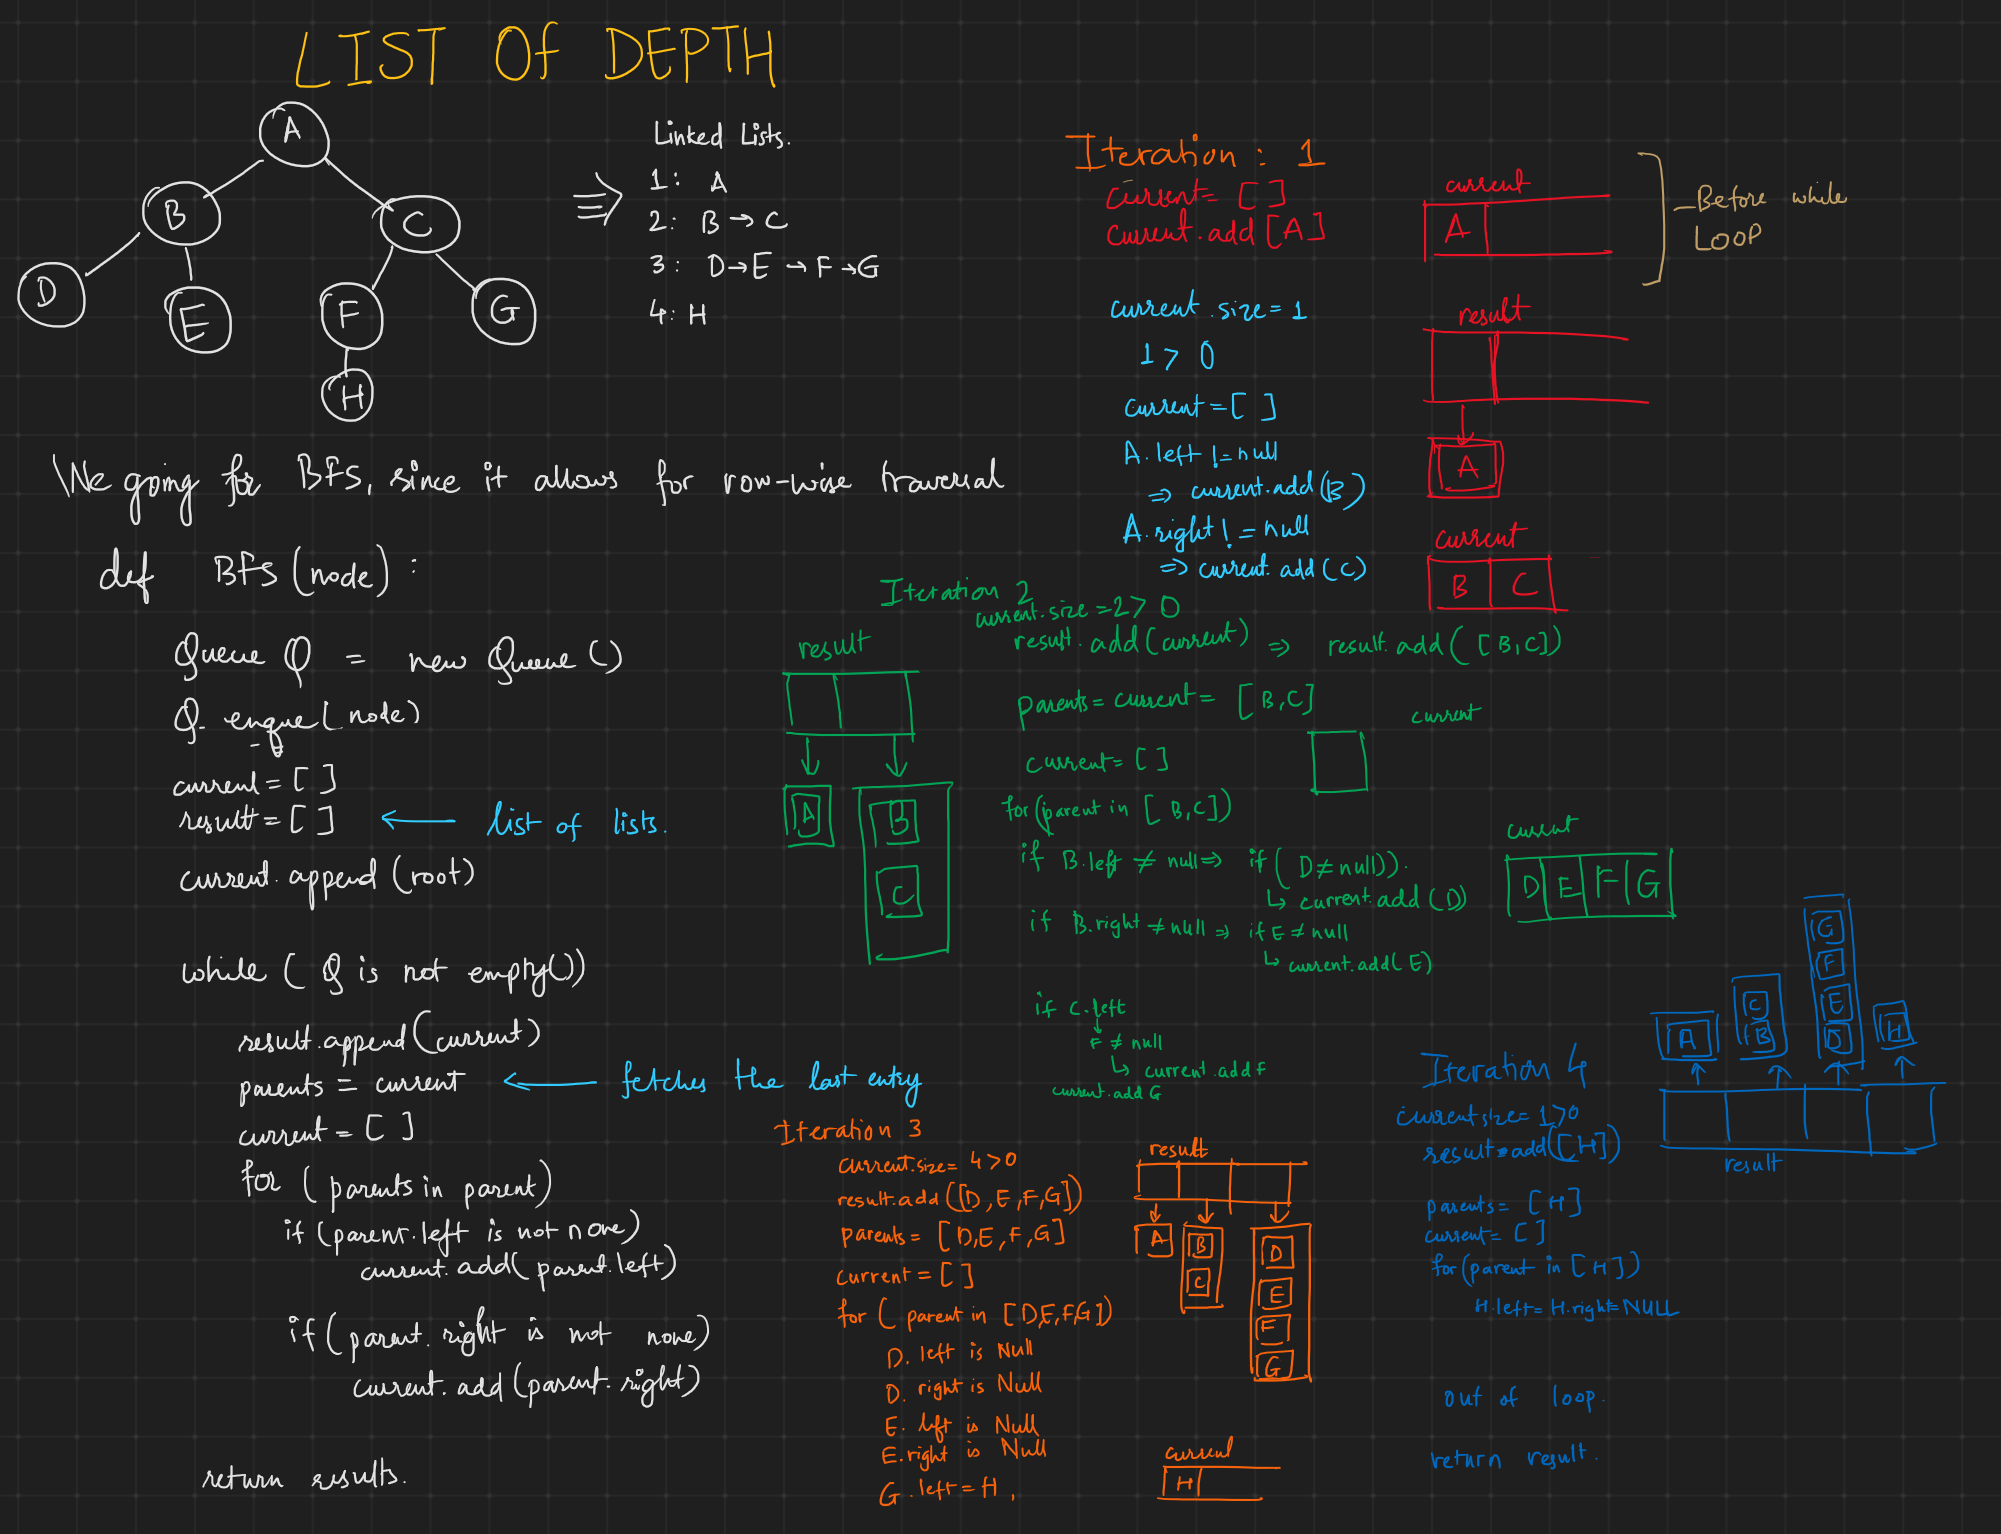 LIST OF DEPTH
A
B
C
D
E
F
G
H
Linked Lists.
1: A
2: B → C
3: D → E → F → G
4: H
We going for BFS, since it allows for row-wise traversal
def BFS (node) :
Queue Q = new Queue ()
Q. enque( node)
current = [ ]
result = [ ] ← list of lists.
current.append (root)
while ( Q is not empty())
result.append (current)
parents = current ← fetches the last entry
current = [ ]
for ( parents in parent)
if (parent.left is not none)
current.add( parent.left)
if ( parent. right is not none)
current. add (parent. right)
return results.
Iteration : 1
current = [ ]
current.add [A]
current
A
Before while
LOOP
current .size = 1
1 > 0
current = [ ]
A.left != null
⇒ current.add (B)
A.right != null
⇒ current. add (C)
result
A
current
B C
Iteration 2
current.size = 2 > 0
result. add (current) ⇒ result.add ( [B,C])
result
A
B
C
parents = current = [B,C]
current
current = [ ]
for (parent in [B,C])
if B.left ≠ null ⇒ if ( D ≠ null)).
↳ current.add (D)
if B.right ≠ null ⇒ if E ≠ null
↳ current.add( E)
if C.left
↓
F ≠ null
↳ current.add F
current.add G
current
D E F G
Iteration 3
current.size = 4 > 0
result.add ([D, E, F, G])
parents = [D,E, F, G]
current = [ ]
for ( parent in [D,E,F,G])
D. left is Null
D. right is Null
E. left is Null
E.right is Null
G .left = H ,
result
A
B
C
D
E
F
G
current
H
Iteration 4
current size = 1 > 0
result.add([H])
parents = [H]
current = [ ]
for (parent in [H])
H.left = H.right = NULL
out of loop.
return result.
G
F
C E H
A B D
result